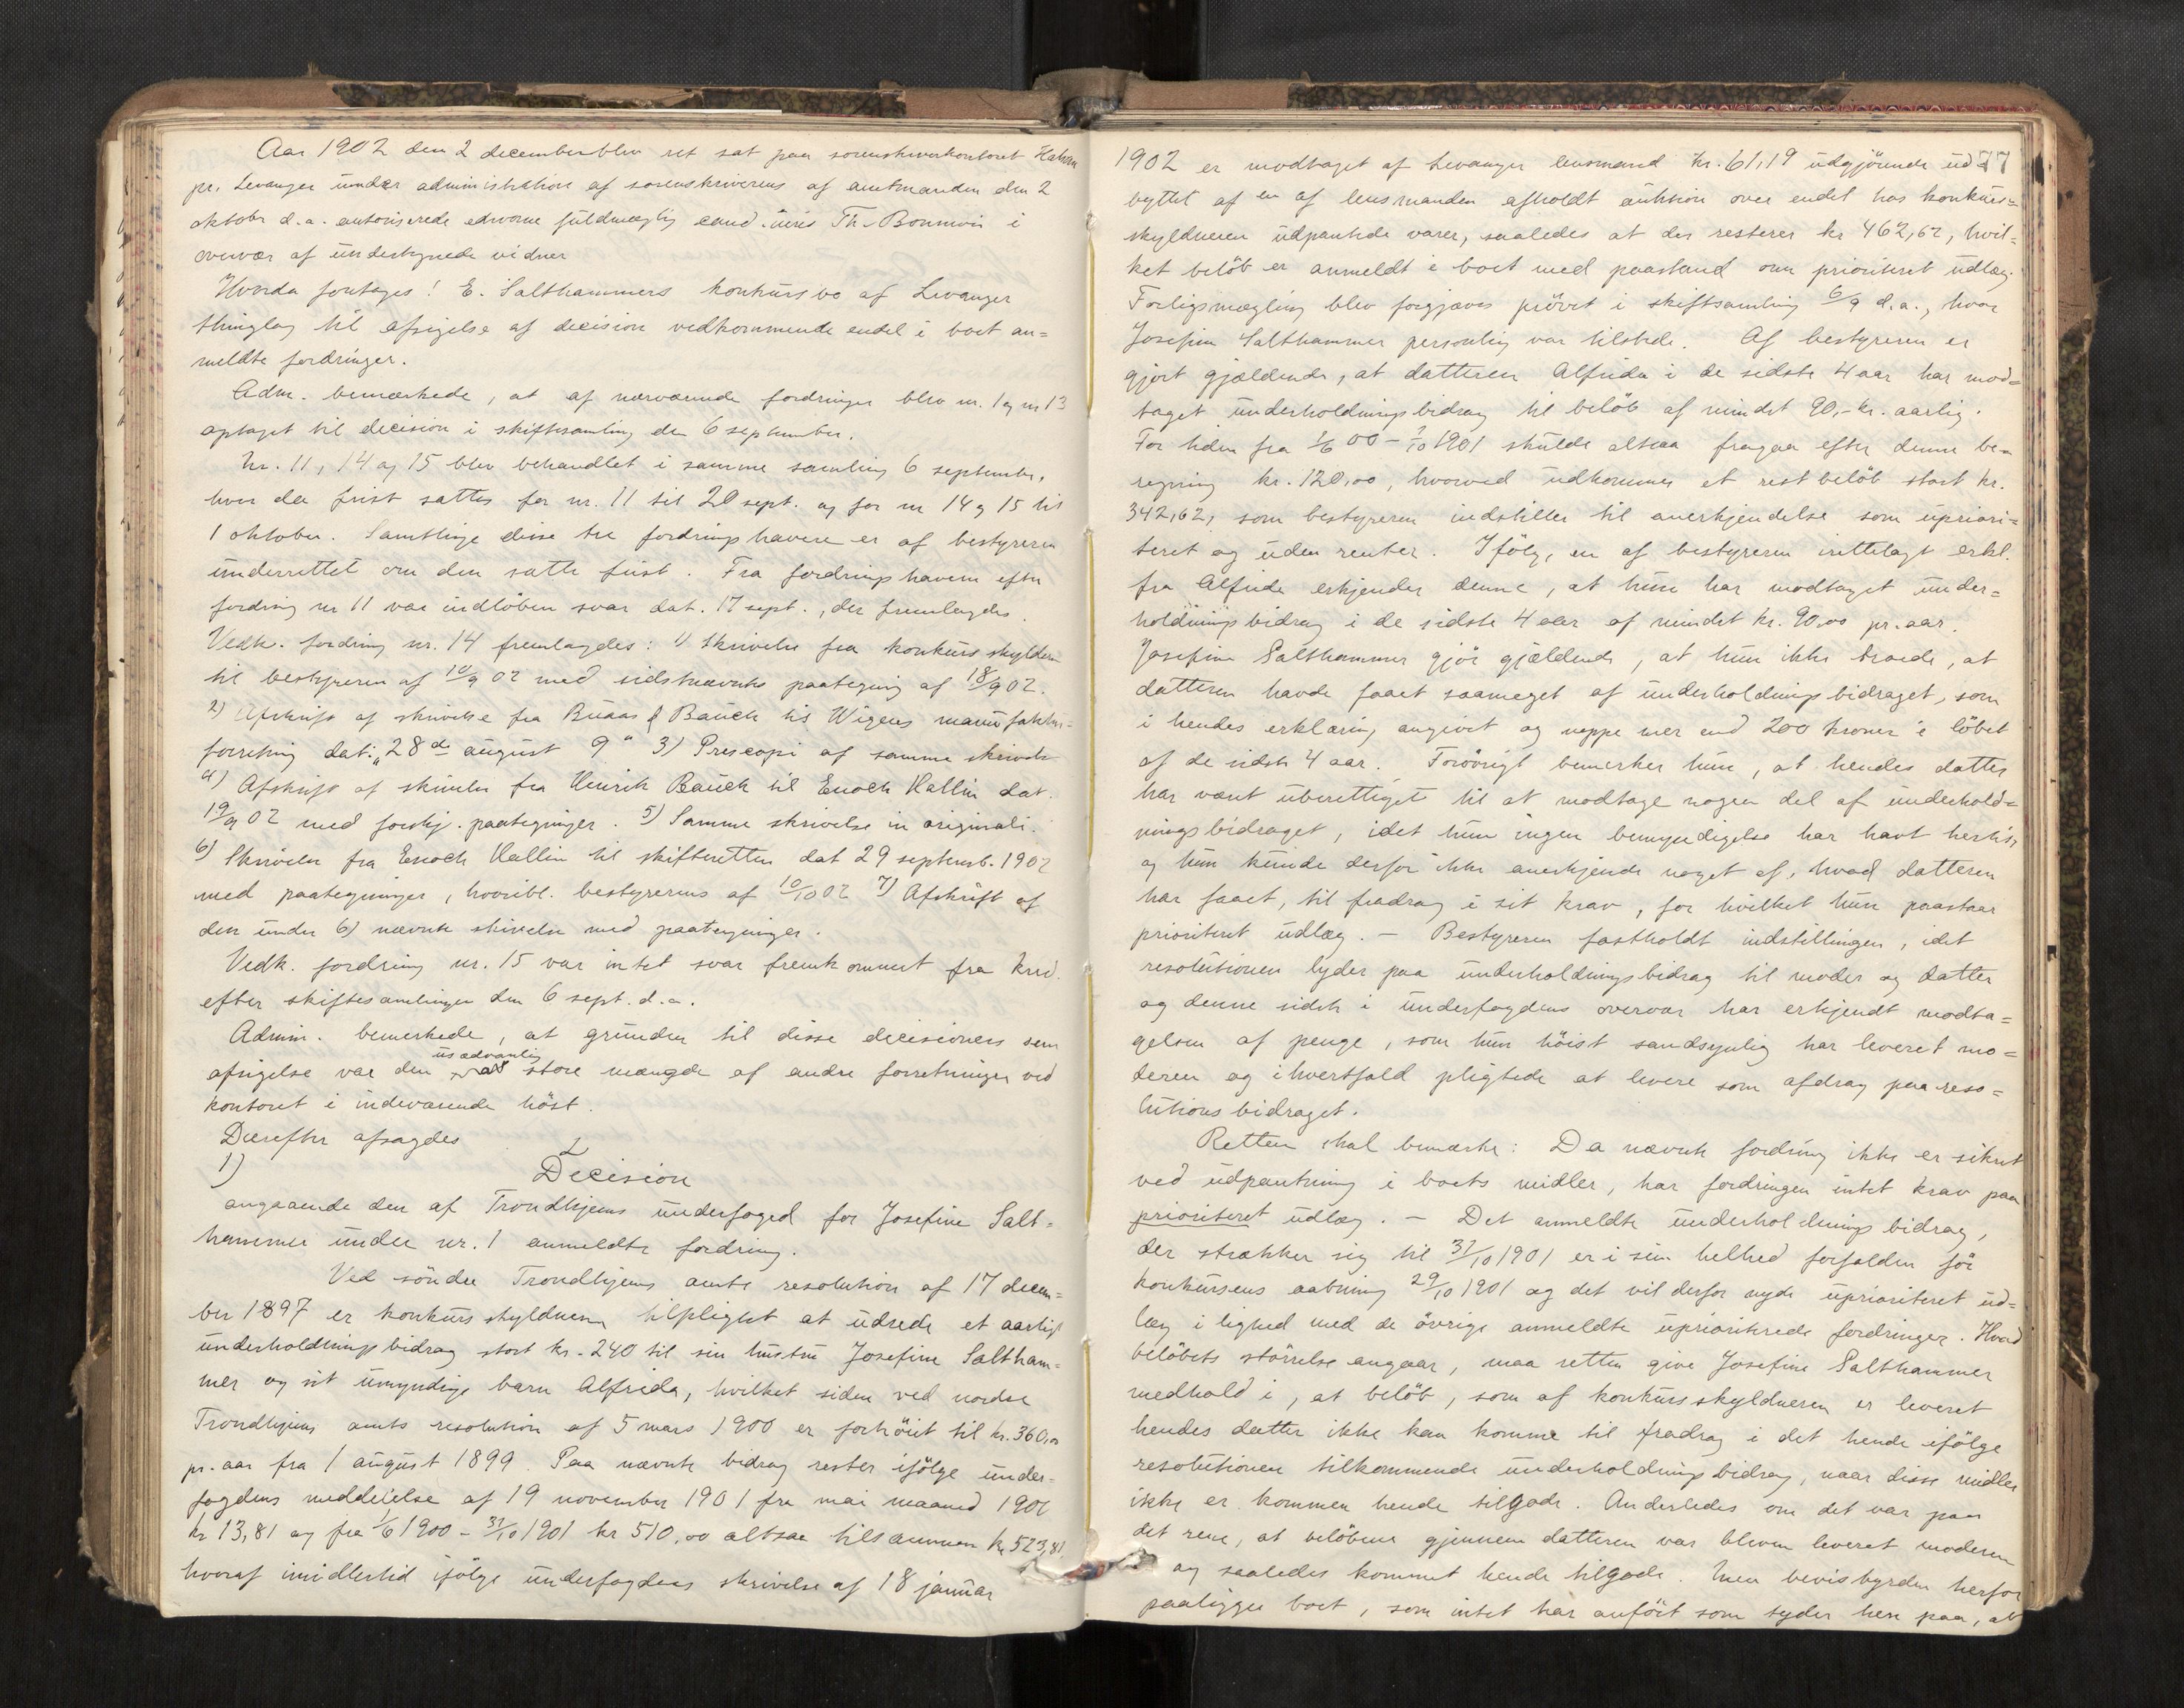 Aar 1902 den 2 december blev ret sat paa sorenskriverkontoret
pr. Levanger under administration af sorenskriverens af amtmanden den 2
oktober d.a. autoriserede edsvorne fuldmægtig cand. juris Th. i
overvær af undertegnede vidner
Hvorda foretoges: E. Salthammers konkursbo af Levanger
thinglag til afsigelse af decision vedkommende endel i boet an=
meldte fordringer.
Adm. bemærkede, at af nærværende fordringer blev nr. 1 og nr 13
optaget til decision i skiftesamling den 6 september.
Nr. 11, 14 og 15 blev behandlet i samme samling 6 september,
hvor der frist sattes for nr. 11 til 20 sept. og for nr 14 og 15 til
1 oktober. Samtlige disse tre fordringshavere er af bestyreren
underrettet om den satte frist. Fra fordringshaveren efter
fordring nr 11 var indløben svar dat. 17 sept., der fremlagdes.
Vedk. fordring nr. 14 fremlagdes: 1) Skrivelse fra konkursskyldneren
til bestyreren af 10/9 02 med sidstnævntes paategning af 18/9 02.
2) Afskrift af skrivelse fra Buaas & Bauck til Wigens manufaktur=
forretning dat: "28de august 9" 3) Prescopi af samme skrivelse
4) Afskrift af skrivelse fra Henrik Bauck til Enoch Hallin dat.
19/9 02 med forskj. paategninger. 5) Samme skrivelse in originali.
6) Skrivelse fra Enoch Hallin til skifteretten dat 29 septemb. 1902
med paategninger, hvoribl. bestyrerens af 10/10 02 7) Afskrift af
den under 6) nævnte skrivelse med paategninger.
Vedk. fordring nr. 15 var intet svar fremkommet fra kred.
efter skiftesamlingen den 6 sept. d.a.
Admin. bemerkede, at grunden til disse decisioners sene
afsigelse var den usædvanlig store mængde af andre forretninger ved
kontoret i indeværende høst.
Derefter afsagdes
1) Decision
angaaende den af Trondhjems underfoged for Josefine Salt=
hammer under nr. 1 anmeldte fordring.
Ved søndre Trondhjems amts resolution af 17 decem=
ber 1897 er konkursskyldneren tilpligtet at udrede et aarligt
underholdningsbidrag stort kr. 240 til sin hustru Josefine Saltham=
mer og sit umyndige barn Alfrida, hvilket siden ved nordre
Trondhjems amts resolution af 5 mars 1900 er forhøiet til kr. 360,00
pr. aar fra 1 august 1899. Paa nævnte bidrag rester ifølge under=
fogdens meddelelse af 19 november 1901 fra mai maaned 1900
kr 13,81 og fra 1/6 1900 - 31/10 1901 kr 510,00 altsaa tilsammen kr 523,81
hvoraf imidlertid ifølge underfogdens skrivelse af 18 januar
77
1902 er modtaget af Levanger lensmand kr. 61,19 udgjørende ud=
byttet af en af lensmanden afholdt auktion over endel hos konkurs=
skyldneren udpantede varer, saaledes at der resterer kr 462,62, hvil=
ket beløb er anmeldt i boet med paastand om prioriteret udlæg.
Forligsmægling blev forgjæves prøvet i skiftsamling 6/9 d.a., hvor
Josefine Salthammer personlig var tilstede. Af bestyreren er
gjort gjældende, at datteren Alfrida i de sidste 4 aar har mod=
taget underholdningsbidrag til beløb af mindst 90,- kr. aarlig.
For tiden fra 1/6 00 - 1/10 1901 skulde altsaa fragaa efter denne be=
regning kr. 120,00, hvorved udkommer et restbeløb stort kr.
342,62, som bestyreren indstiller til anerkjendelse som upriori=
teret og uden renter. Ifølg, en af bestyreren irettelagt erkl.
fra Alfrida erkjender denne, at hun har modtaget under=
holdningsbidrag i de sidste 4 aar af mindst kr. 90,00 pr. aar.
Josefine Salthammer gjør gjældende, at hun ikke troede, at
datteren havde faaet saameget af underholdningsbidraget, som
i hendes erklæring angivet og neppe mer end 200 kroner i løbet
af de sidste 4 aar. Forøvrigt bemerker hun, at hendes datter
har været uberettiget til at modtage nogen del af underhold=
ningsbidraget, idet hun ingen bemyndigelse har havt hertil,
og hun kunde derfor ikke anerkjende noget af, hvad datteren
har faaet, til fradrag i sit krav, for hvilket hun paastaar
prioriteret udlæg. - Bestyreren fastholdt indstillingen, idet
resolutionen lyder paa underholdningsbidrag til moder og datter
og denne sidste i underfogdens overvær har erkjendt modta=
gelsen af penge, som hun høist sandsynlig har leveret mo=
deren og ihvertfald pligtede at levere som afdrag paa reso=
lutionsbidraget.
Retten skal bemærke: Da nævnte fordring ikke er sikret
ved udpantning i boets midler, har fordringen intet krav paa
prioriteret udlæg. - Det anmeldte underholdningsbidrag,
der strækker sig til 31/10 1901 er i sin helhed forfalden før
konkursens aabning 29/10 1901 og det vil derfor nyde uprioriteret ud=
læg i lighed med de øvrige anmeldte uprioriterede fordringer. Hvad
beløbets størrelse angaar, maa retten give Josefine Salthammer
medhold i, at beløb, som af konkursskyldneren er leveret
hendes datter ikke kan komme til fradrag i det hende ifølge
resolutionen tilkommende underholdningsbidrag, naar disse midler
ikke er kommen hende tilgode. Anderledes om det var paa
det rene, at beløbene gjennem datteren var bleven leveret moderen
og saaledes kommet hende tilgode. Men bevisbyrden herfor
paaligger boet, som intet har anført som tyder hen paa, at